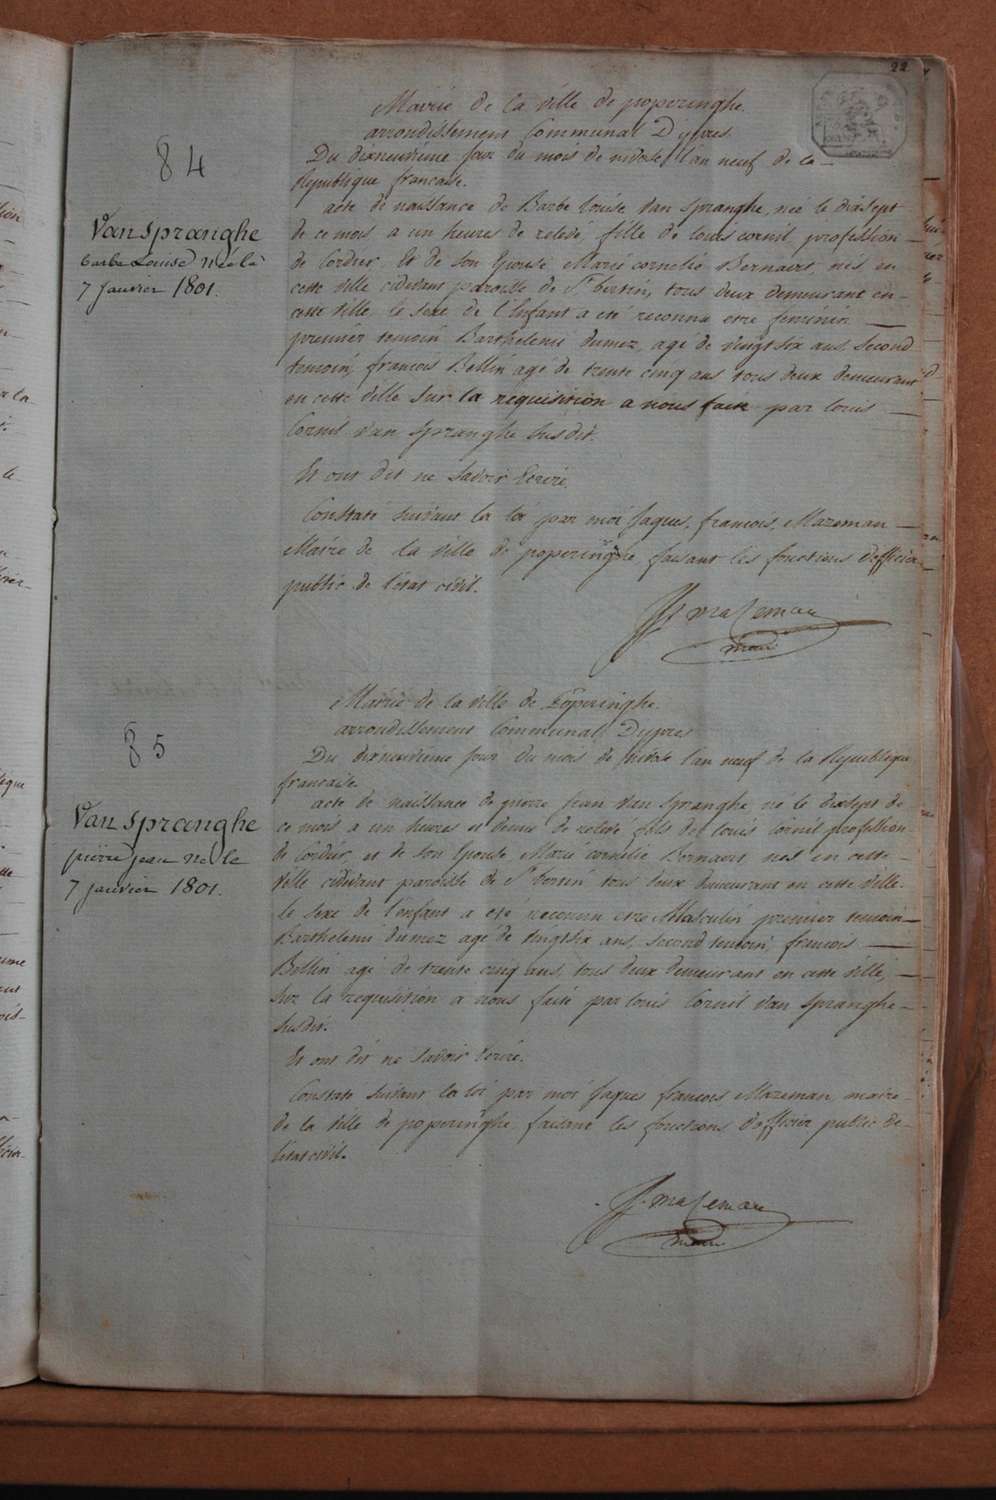 22
84
Van Spranghe
barbe Louise Née Le
7 Janvier 1801.
Mairie de la ville de poperinghe.
arrondissement Communal Dypres.
Du dixneuvieme jour du mois de nivose l'an neuf de la
Republique francaise.
acte de naissance de Barbe Louise van Spranghe, née le dixsept
de ce mois a un heures de relevé, fille de louis cornil, profession
de Cordier, et de son Epouse Marie cornelie Bernaert, nés en
cette ville cidevant paroisse de St. bertin, tous deux demeurant en
cette ville, le sexe de l'Enfant a eté reconnu etre feminin
premier temoin Barthelemi dumez, agé de vingt six ans, second
temoin, francois Bellin agé de trente cinq ans tous deux demeurant
en cette ville sur la requisition a nous faite par louis
Cornil van spranghe susdit.
Et ont dit ne savoir Ecrire.
Constaté suivant la loi par moi Jaques, francois, Mazeman
Maire de la ville de poperinghe faisant les fonctions d'officier
public de l'état civil.
JJ mazeman
maire
85
Van Spranghe
pierre jean Né le
7 janvier 1801.
Mairie de la ville de Poperinghe.
arrondissement Communal Dypres
Du dixneuvieme jour du mois de nivose l'an neuf de la Republique
francaise.
acte de naissance de pierre jean van spranghe né le dixsept de
ce mois a un heures et demie de relevé fils de louis Cornil profession
de Cordier, et de son Epouse Marie cornelie Bernaert nés en cette
ville cidevant paroisse de St bertin tous deux demeurant en cette ville.
le sexe de l'enfant a eté reconnu etre Masculin premier temoin
Barthelemi dumez agé de vingtsix ans, second temoin, francois
Bellin agé de trente cinq ans, tous deux demeurant en cette ville,
sur la requisition a nous faite par louis Cornil van spranghe
susdit.
Et ont dit ne savoir Ecrire.
Constaté suivant la loi par moi Jaques francois Mazeman, maire
de la ville de poperinghe faisant les fonctions d'officier public de
l'état civil.
JJ mazeman
maire